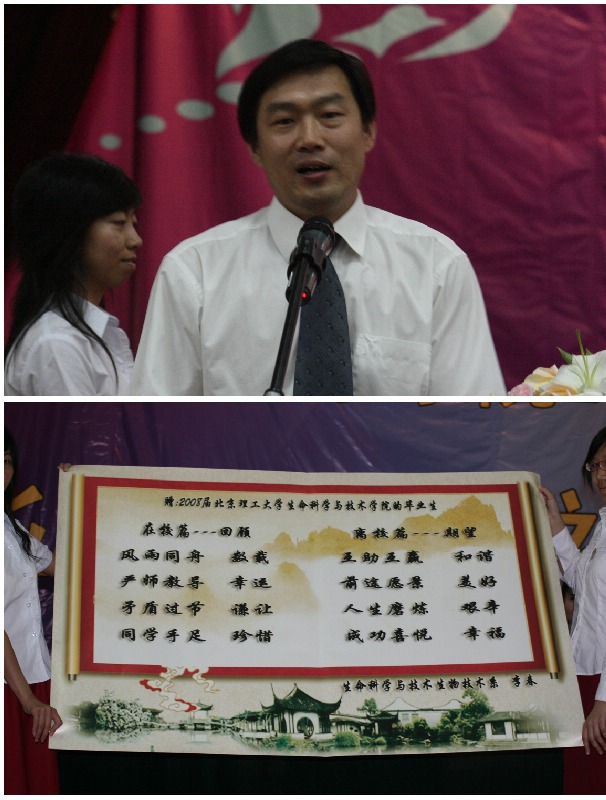 赠:2008届北京理工大学生命科学与技术学院的毕业生
在校篇---回顾
风雨同舟 数载
严师教导 幸运
矛盾过节 谦让
同学手足 珍惜
离校篇---期望
互助互赢 和谐
前途愿景 美好
人生磨炼 艰辛
成功喜悦 幸福
生命科学与技术生物技术系 李春